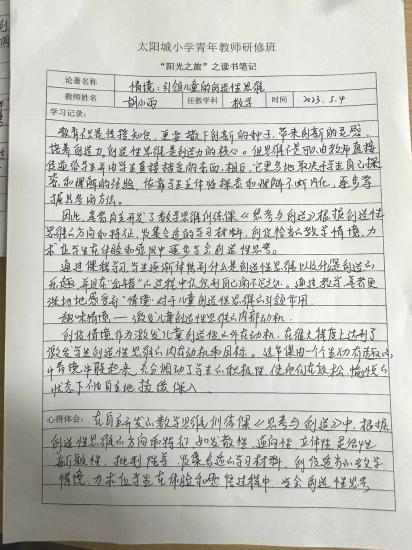 太阳城小学青年教师研修班
“阳光之旅”之读书笔记
论著名称 情境：引领儿童的创造性思维
教师姓名 胡小雨 任教学科 数学 时间 2023.5.4
学习记录：
教育不只是传授知识，更要播下创新的种子，带来创新的灵感，
培养创造力，创造性思维是创造力的核心。但思维不是可以由教师直接
交给学生并由学生直接接受的东西，相反，它更多地取决于学生自己探
索和理解的经验，依靠学生不断探索和理解不断内化，逐步掌
握思考的方法。
因此，笔者自主开发了数学思维训练课《思考与创造》根据创造性
思维的方向和特征，收集合适的学习材料，创设恰当的数学情境，力
求让学生在体验和感悟中逐步学会创造性思考。
通过课程学习，学生逐渐体悟到什么是创造性思维以及什么是创造的
乐趣，并且在 过程中认识到自己的不足处。通过教学，笔者更
深切地感受到“情境”对于儿童创造性思维的引领作用
趣味情境——激发儿童创造性思维的内部动机
创设情境作为激发儿童创造性思维的外在动机，在很大程度上达到了
激发学生创造性思维的内在动机和目标。这节课由一个生动有趣的
情境串联起来，充分调动了学生的积极性，使他们在放松、愉悦的
状态下不由自主地 深入
心得体会：在自主开发的数学思维训练课《思考与创造》中，根据
创造性思维的方向和特征，如发散性、逆向性、立体性、灵活性
新颖性、批判性等，收集合适的学习材料，创设适当的数学
情境，力求让学生在体验和感悟过程中，学会创造性思考